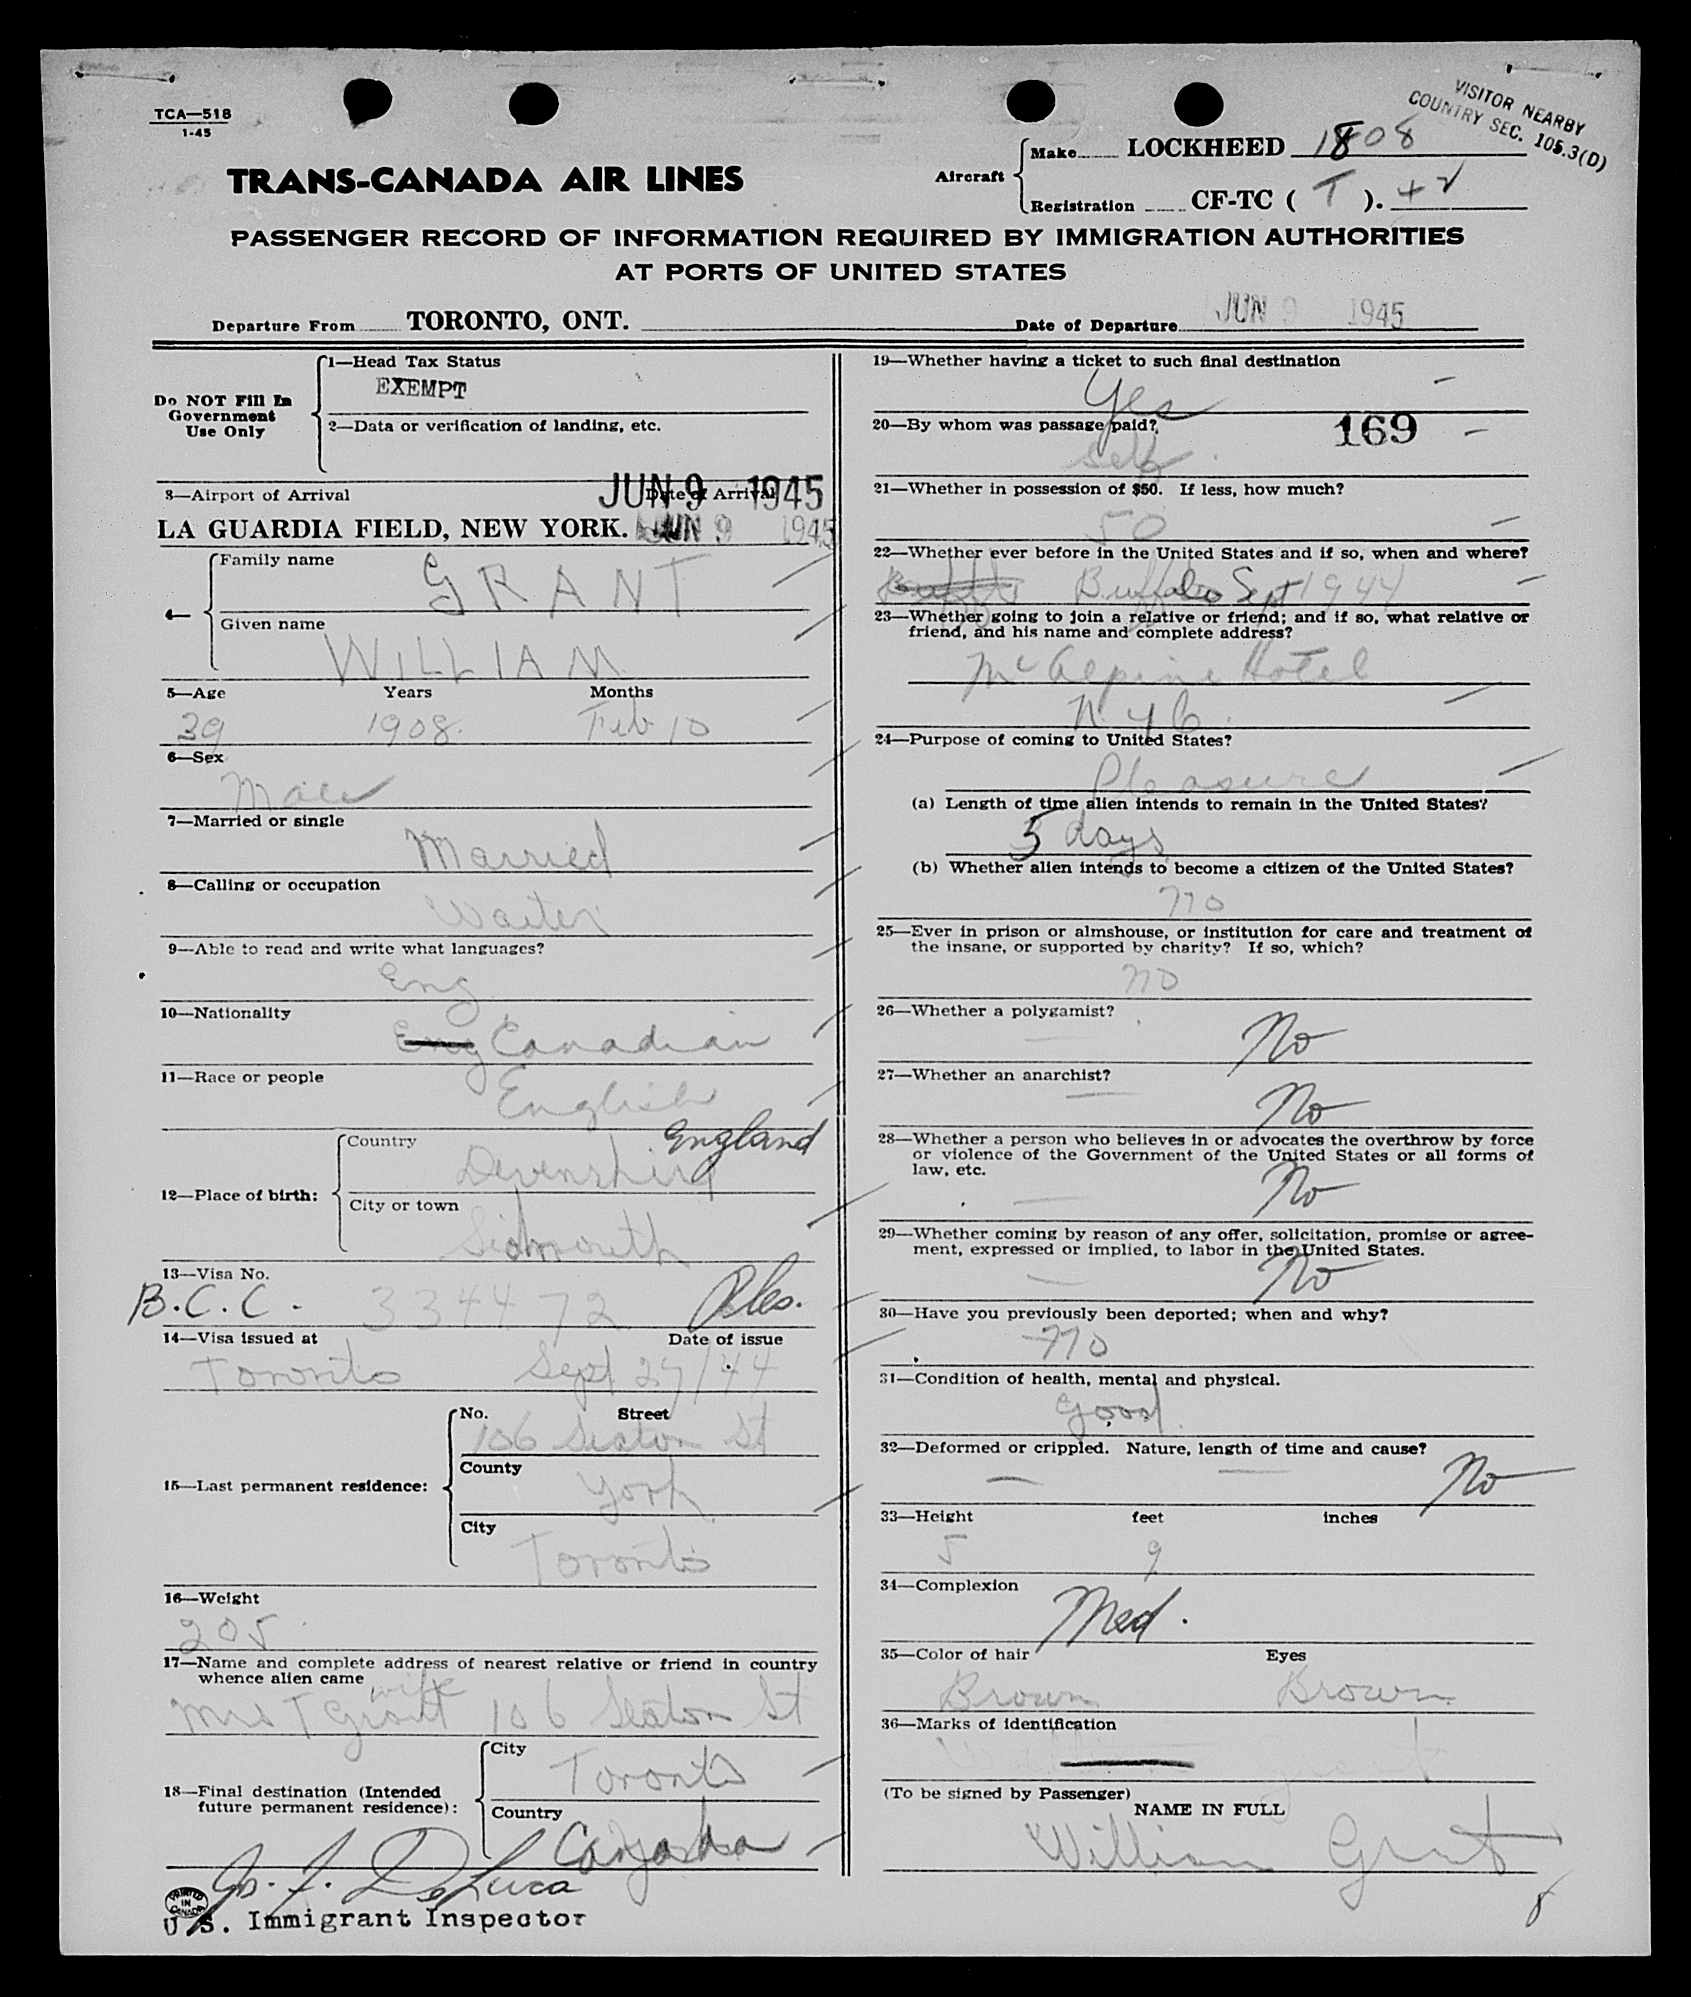 TCA—518
1-45
VISITOR NEARBY
COUNTRY SEC. 105.3(D)
TRANS-CANADA AIR LINES
Aircraft
Make LOCKHEED 1808
Registration CF-TC ( T ). 42
PASSENGER RECORD OF INFORMATION REQUIRED BY IMMIGRATION AUTHORITIES
AT PORTS OF UNITED STATES
Departure From TORONTO, ONT.
Date of Departure JUN 9 1945
Do NOT Fill In
Government
Use Only
1—Head Tax Status
EXEMPT
2—Data or verification of landing, etc.
3—Airport of Arrival
Date of Arrival
JUN 9 1945
LA GUARDIA FIELD, NEW YORK. JUN 9 1945
4—
Family name
GRANT
Given name
WILLIAM
5—Age Years Months
39 1908 Feb 10
6—Sex
Male
7—Married or single
Married
8—Calling or occupation
Waiter
9—Able to read and write what languages?
Eng
10—Nationality
Eng Canadian
11—Race or people
English
12—Place of birth:
Country
Devenshire England
City or town
Sidmouth
13—Visa No.
B.C.C. 334472
14—Visa issued at Date of issue
Toronto Sept 27/44
15—Last permanent residence:
No. Street
106 Seaton St
County
York
City
Toronto
16—Weight
205
17—Name and complete address of nearest relative or friend in country
whence alien came
wife
Mrs T Grant 106 Seaton St
18—Final destination (Intended
future permanent residence):
City
Toronto
Country
Canada
Jos. F. DeLuca
PRINTED IN CANADA
U.S. Immigrant Inspector
19—Whether having a ticket to such final destination
Yes
20—By whom was passage paid?
169
self
21—Whether in possession of $50. If less, how much?
50
22—Whether ever before in the United States and if so, when and where?
Buffalo Buffalo Sept 1944
23—Whether going to join a relative or friend; and if so, what relative or
friend, and his name and complete address?
McAlpine Hotel
N.Y.C.
24—Purpose of coming to United States?
Pleasure
(a) Length of time alien intends to remain in the United States?
5 days
(b) Whether alien intends to become a citizen of the United States?
no
25—Ever in prison or almshouse, or institution for care and treatment of
the insane, or supported by charity? If so, which?
no
26—Whether a polygamist?
No
27—Whether an anarchist?
No
28—Whether a person who believes in or advocates the overthrow by force
or violence of the Government of the United States or all forms of
law, etc.
No
29—Whether coming by reason of any offer, solicitation, promise or agree-
ment, expressed or implied, to labor in the United States.
No
30—Have you previously been deported; when and why?
no
31—Condition of health, mental and physical.
good
32—Deformed or crippled. Nature, length of time and cause?
No
33—Height feet inches
5 9
34—Complexion
Med.
35—Color of hair Eyes
Brown Brown
36—Marks of identification
(To be signed by Passenger)
NAME IN FULL
William Grant
8